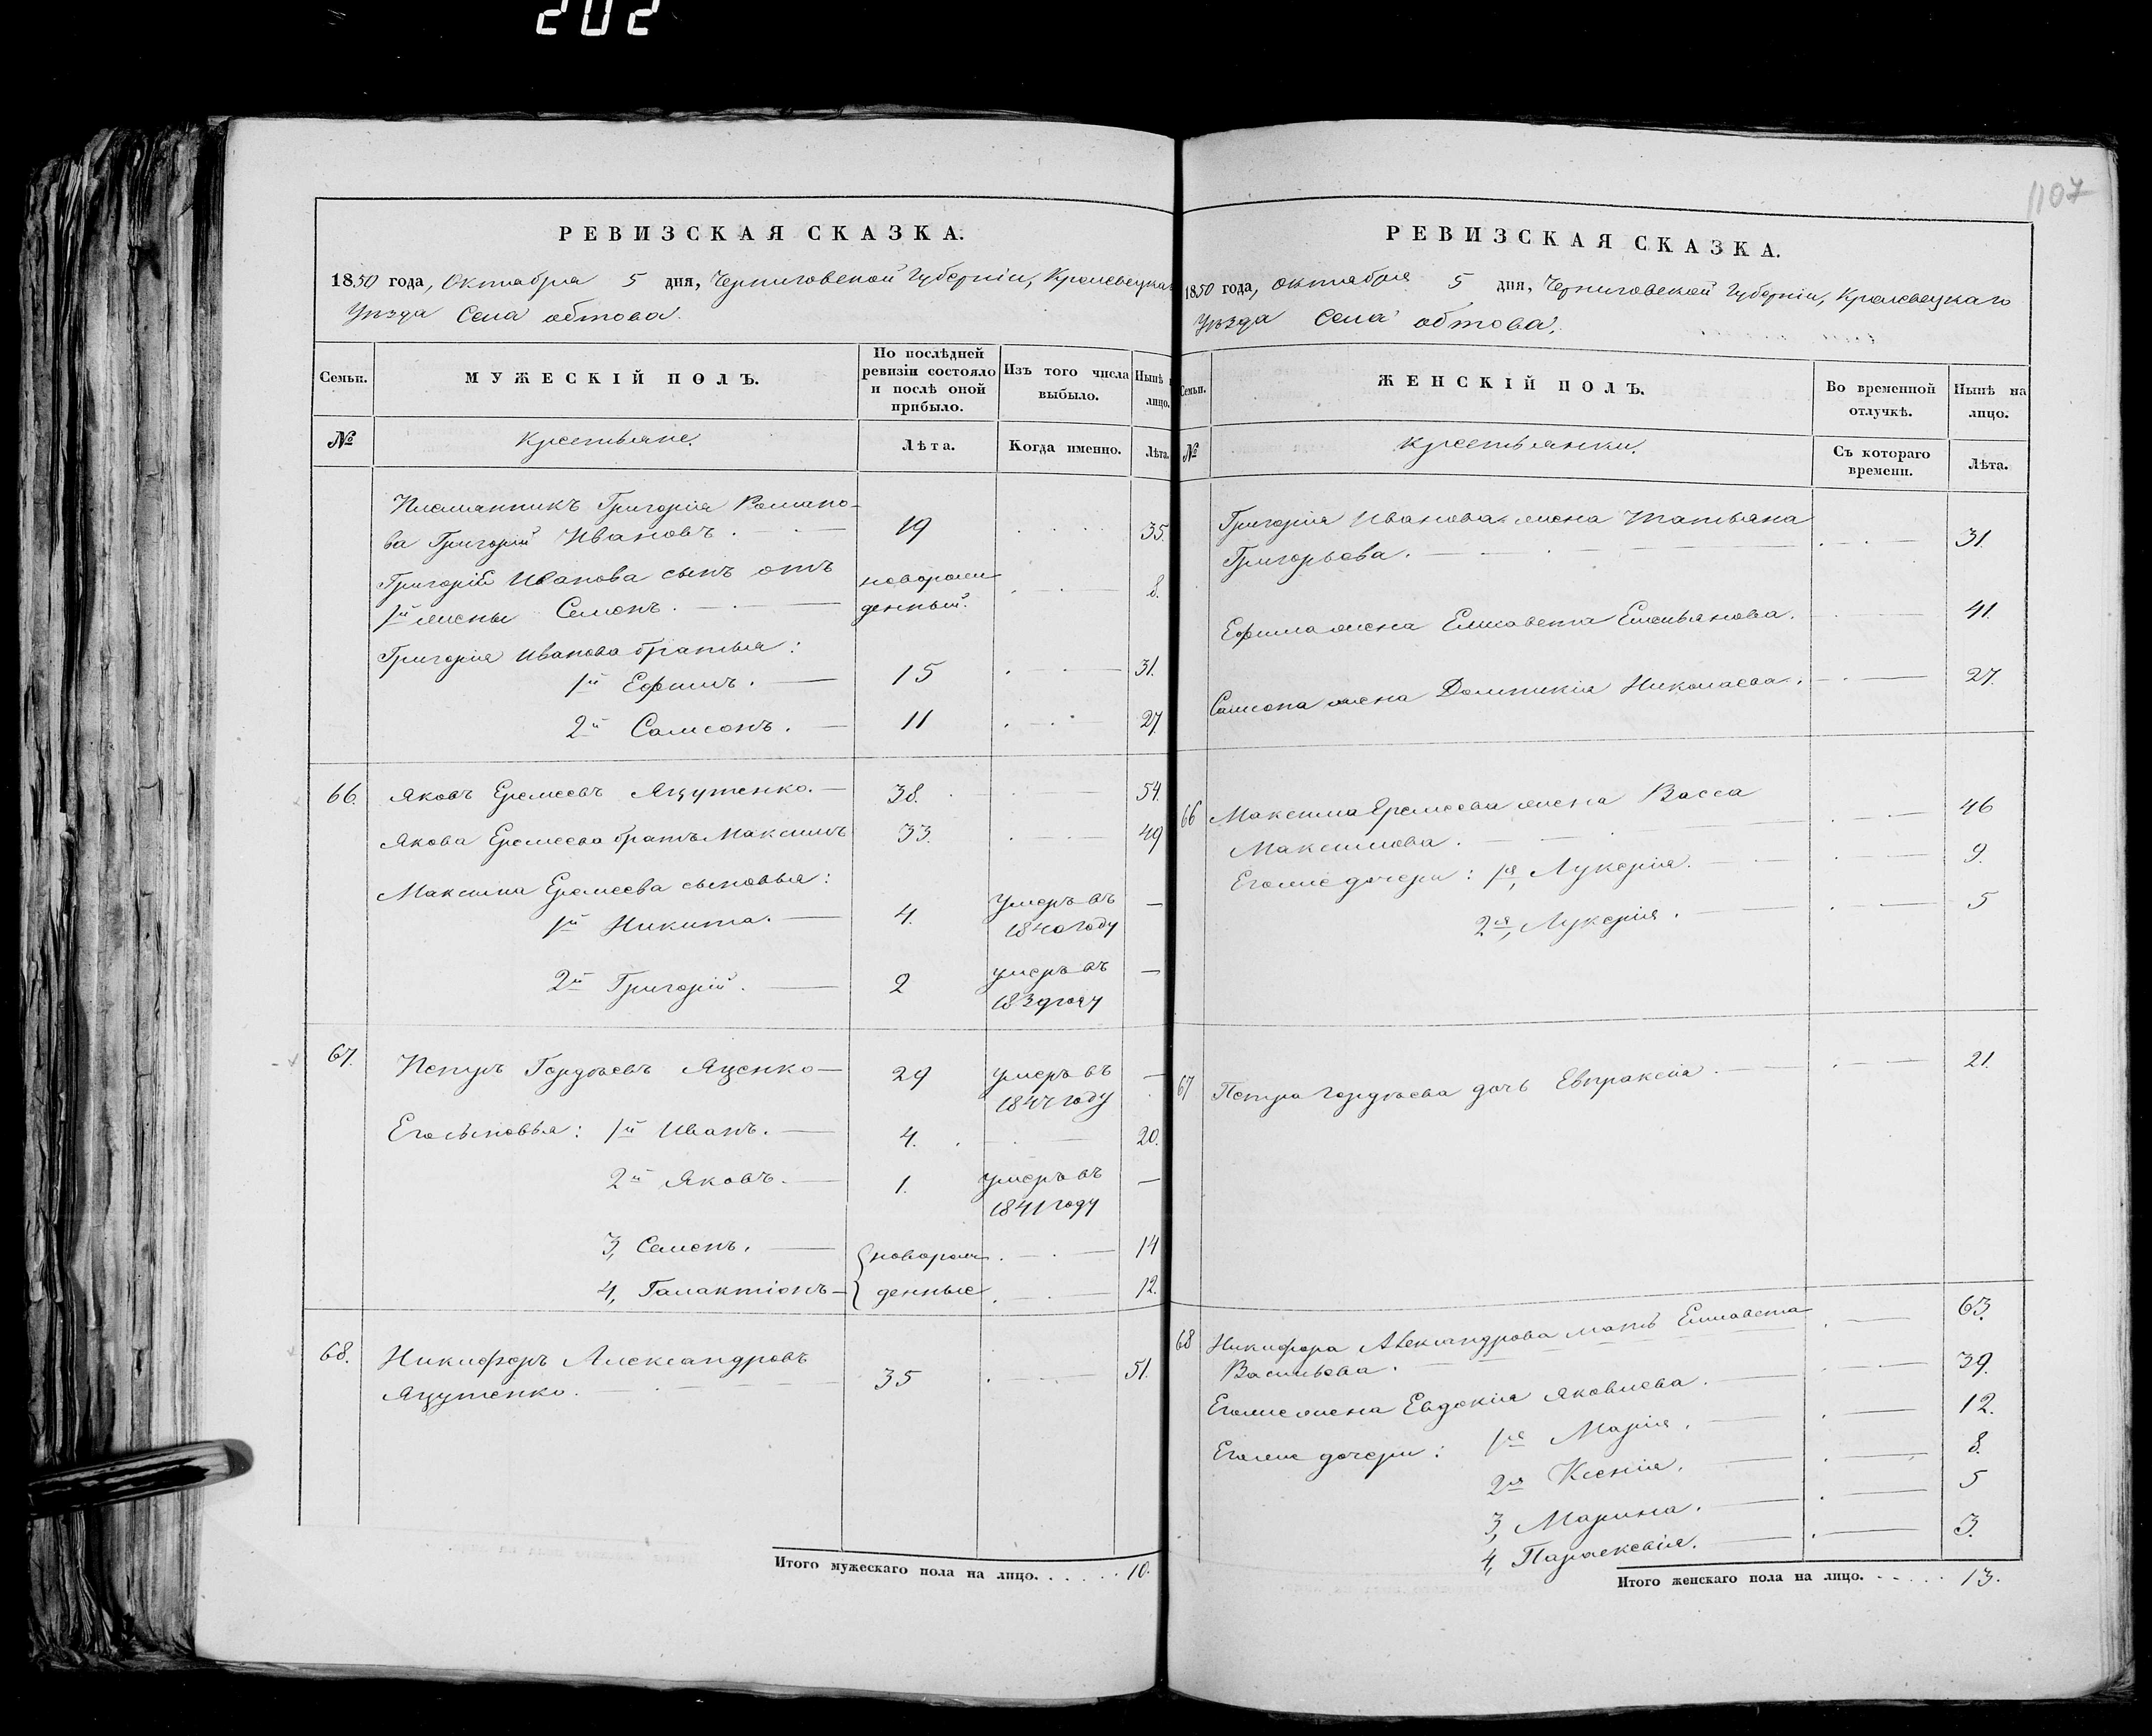 202
1107
РЕВИЗСКАЯ СКАЗКА.
1850 года, Октября 5 дня, Черниговской Губерніи, Кролевецка
Уѣзда Села обтова.
Семьи.
МУЖЕСКІЙ ПОЛЪ.
По послѣдней ревизіи состояло и послѣ оной прибыло.
Изъ того числа выбыло.
Нынѣ лицо.
№
Крестьяне.
Лѣта.
Когда именно.
Лѣта.
Племянникъ Григорія Романо-
ва Григорій Ивановъ. 19 35.
Григорій Иванова сынъ отъ новорож
1й жены Семенъ. денный. 8.
Григорія Иванова братья:
1й Ефимъ. 15 31.
2й Самсонъ. 11 27.
66. Яковъ Еремеевъ Яцутенко. 38. 54.
Якова Еремеева братъ Максимъ 33. 49
Максима Еремеева сыновья:
1й Никита. 4. Умеръ въ 1840 году —
2й Григорій. 2 умеръ въ 1839 году —
67. Петръ Гордѣевъ Яценко 29 умеръ въ 1847 году —
Его сыновья: 1й Иванъ. 4. 20.
2й Яковъ. 1. умеръ въ 1841 году —
3, Семенъ. новорож 14
4, Галактіонъ денные 12.
68. Никифоръ Александровъ
Яцутенко. 35 51.
Итого мужескаго пола на лицо. 10.
РЕВИЗСКАЯ СКАЗКА.
1850 года, октября 5 дня, Черниговской Губерніи, Кролевецкаго
Уѣзда Села обтова.
Семьи.
ЖЕНСКІЙ ПОЛЪ.
Во временной отлучкѣ.
Нынѣ на лицо.
№
Крестьянки.
Съ котораго времени.
Лѣта.
Григорія Иванова жена Татьяна
Григорьева. 31.
Ефима жена Елисавета Емельянова. 41.
Самсона жена Домникія Николаева. 27.
66 Максима Еремеева жена Васса
Максимова. 46
Его же дочери: 1я, Лукерія. 9.
2я, Лукерія. 5
67 Петра Гордѣева дочь Евпраксія. 21.
68 Никифора Александрова мать Елисавета
Васильева. 63.
Его же жена Евдокія Яковлева. 39.
Его же дочери: 1я Марія. 12.
2я Ксенія. 8.
3, Марина. 5
4, Параскевія. 3.
Итого женскаго пола на лицо. 13.